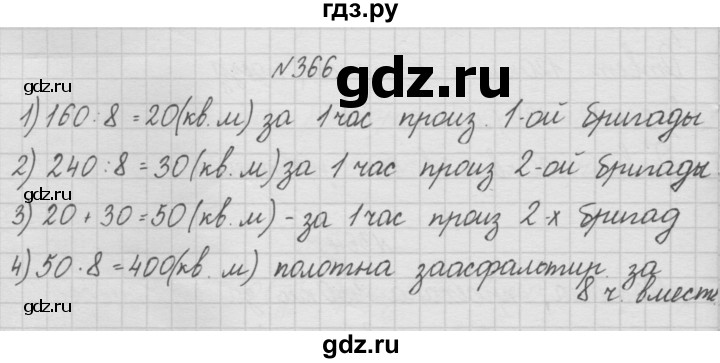 гдз.ру
gdz.ru
№366
gdz.ru
gdz.ru
1) 160:8=20(кв.м) за 1 час произ. 1-ой бригады
2) 240:8=30(кв.м) за 1 час произ 2-ой бригады.
gdz.ru
3) 20+30=50(кв.м) - за 1 час произ 2-х бригад
4) 50·8=400(кв.м) полотна заасфальтир. за
8 ч. вместе
gdz.ru
gdz.ru